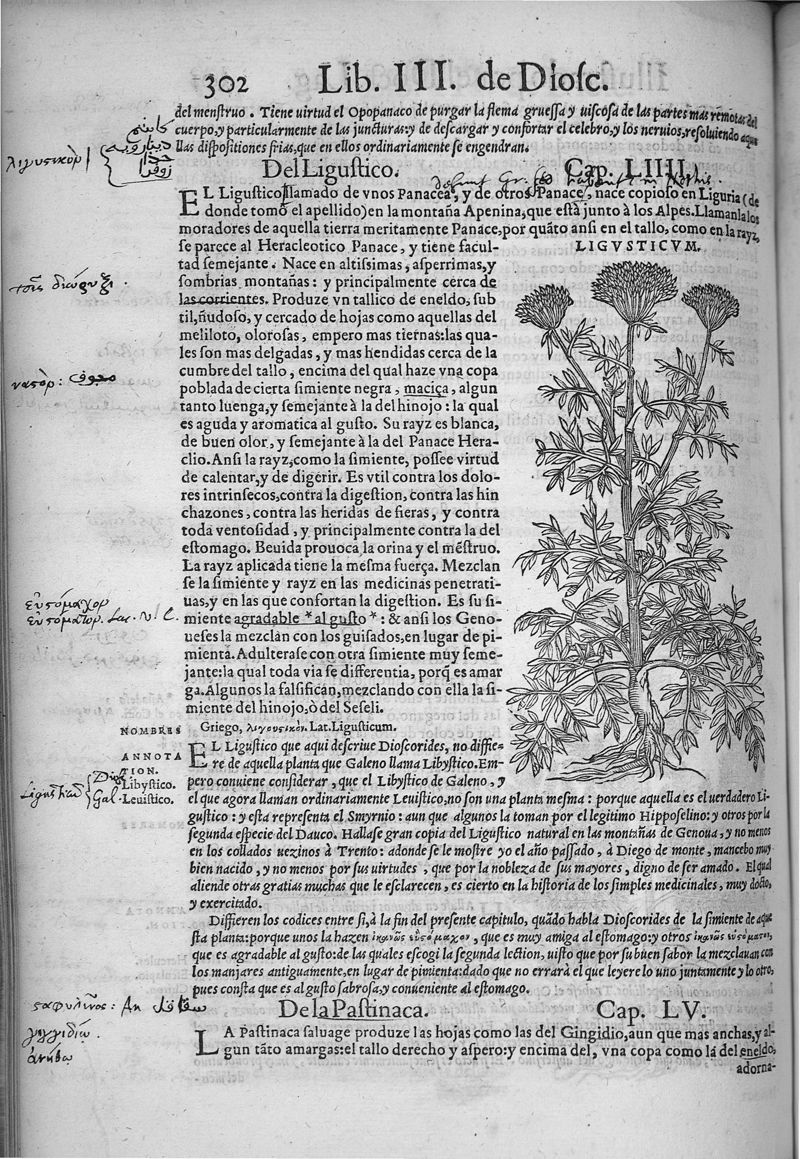 302 Lib. III. de Diosc.
del menstruo. Tiene uirtud el Opopanaco de purgar la flema gruessa y uiscosa de las partes mas remotas del
cuerpo, y particularmente de las juncturas: y de descargar y confortar el celebro, y los neruios, resoluiendo aque
llas dispositiones frias, que en ellos ordinariamente se engendran.
Del Ligustico. Cap. LIIII.
EL Ligustico llamado de vnos Panacea, y de otros Panace, nace copioso en Liguria (de
donde tomò el apellido) en la montaña Apenina, que està junto à los Alpes. Llamanla los
moradores de aquella tierra meritamente Panace, por quãto ansi en el tallo, como en la rayz,
se parece al Heracleotico Panace, y tiene facul-
LIGVSTICVM.
tad semejante. Nace en altissimas, asperrimas, y
sombrias montañas: y principalmente cerca de
las corrientes. Produze vn tallico de eneldo, sub
til, ñudoso, y cercado de hojas como aquellas del
meliloto, olorosas, empero mas tiernas: las qua-
les son mas delgadas, y mas hendidas cerca de la
cumbre del tallo, encima del qual haze vna copa
poblada de cierta simiente negra, maciça, algun
tanto luenga, y semejante à la del hinojo: la qual
es aguda y aromatica al gusto. Su rayz es blanca,
de buen olor, y semejante à la del Panace Hera-
clio. Ansi la rayz, como la simiente, possee virtud
de calentar, y de digerir. Es vtil contra los dolo-
res intrinsecos, contra la digestion, contra las hin
chazones, contra las heridas de fieras, y contra
toda ventosidad, y principalmente contra la del
estomago. Beuida prouoca la orina y el mẽstruo.
La rayz aplicada tiene la mesma fuerça. Mezclan
se la simiente y rayz en las medicinas penetrati-
uas, y en las que confortan la digestion. Es su si-
miente agradable * al gusto *: & ansi los Geno-
ueses la mezclan con los guisados, en lugar de pi-
mienta. Adulterase con otra simiente muy seme-
jante: la qual toda via se differentia, porq̃ es amar
ga. Algunos la falsifican, mezclando con ella la si-
miente del hinojo, ò del Seseli.
NOMBRES Griego, λιγουσικόν. Lat. Ligusticum.
ANNOTA
TION.
EL Ligustico que aqui descriue Dioscorides, no diffie-
re de aquella planta que Galeno llama Libystico. Em-
Libystico.
Leuistico.
pero conuiene considerar, que el Libystico de Galeno, y
el que agora llaman ordinariamente Leuistico, no son una planta mesma: porque aquella es el uerdadero Li-
gustico: y esta representa el Smyrnio: aun que algunos la toman por el legitimo Hipposelino: y otros por la
segunda especie del Dauco. Hallase gran copia del Ligustico natural en las montañas de Genoua, y no menos
en los collados uezinos à Trento: adonde se le mostre yo el año passado, à Diego de monte, mancebo muy
bien nacido, y no menos por sus uirtudes, que por la nobleza de sus mayores, digno de ser amado. El qual
aliende otras gratias muchas que le esclarecen, es cierto en la historia de los simples medicinales, muy docto,
y exercitado.
Differen los codices entre si, à la fin del presente capitulo, quãdo habla Dioscorides de la simiente de aque
sta planta: porque unos la hazen ἱκανῶς εὐσόμαχον, que es muy amiga al estomago: y otros ἱκανῶς εὐσόματον,
que es agradable al gusto: de las quales escogi la segunda lection, uisto que por su buen sabor la mezclauan con
los manjares antiguamente, en lugar de pimienta: dado que no errarà el que leyere lo uno juntamente y lo otro,
pues consta que es al gusto sabrosa, y conueniente al estomago.
De la Pastinaca. Cap. LV.
LA Pastinaca saluage produze las hojas como las del Gingidio, aun que mas anchas, y al-
gun tãto amargas: el tallo derecho y aspero: y encima del, vna copa como là del eneldo,
adorna-